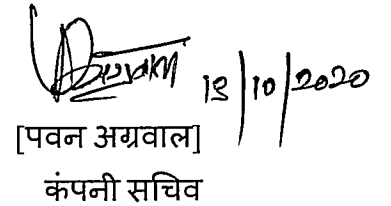 /10/2020
[पवन अग्रवाल]
कंपनी सचिव